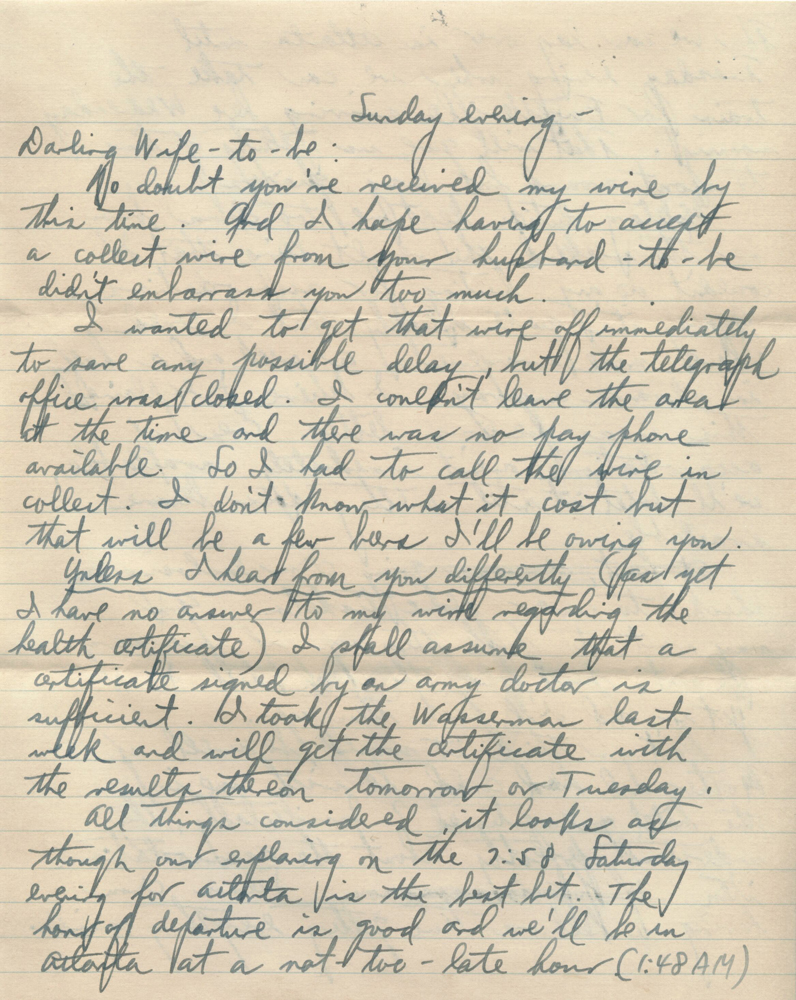 Sunday evening -
Darling Wife-to-be:
No doubt you've received my wire by
this time. And I hope having to accept
a collect wire from your husband-to-be
didn't embarrass you too much.
I wanted to get that wire off immediately
to save any possible delay, but the telegraph
office was closed. I couldn't leave the area
at the time and there was no pay phone
available. So I had to call the wire in
collect. I don't know what it cost but
that will be a few beers I'll be owing you.
Unless I hear from you differently (as yet
I have no answer to my wire regarding the
health certificate) I shall assume that a
certificate signed by an army doctor is
sufficient. I took the Wasserman last
week and will get the certificate with
the results thereon tomorrow or Tuesday.
All things considered, it looks as
though our enplaning on the 7:58 Saturday
evening for Atlanta is the best bet. The
hour of departure is good and we'll be in
Atlanta at a not-too-late hour (1:48 AM)